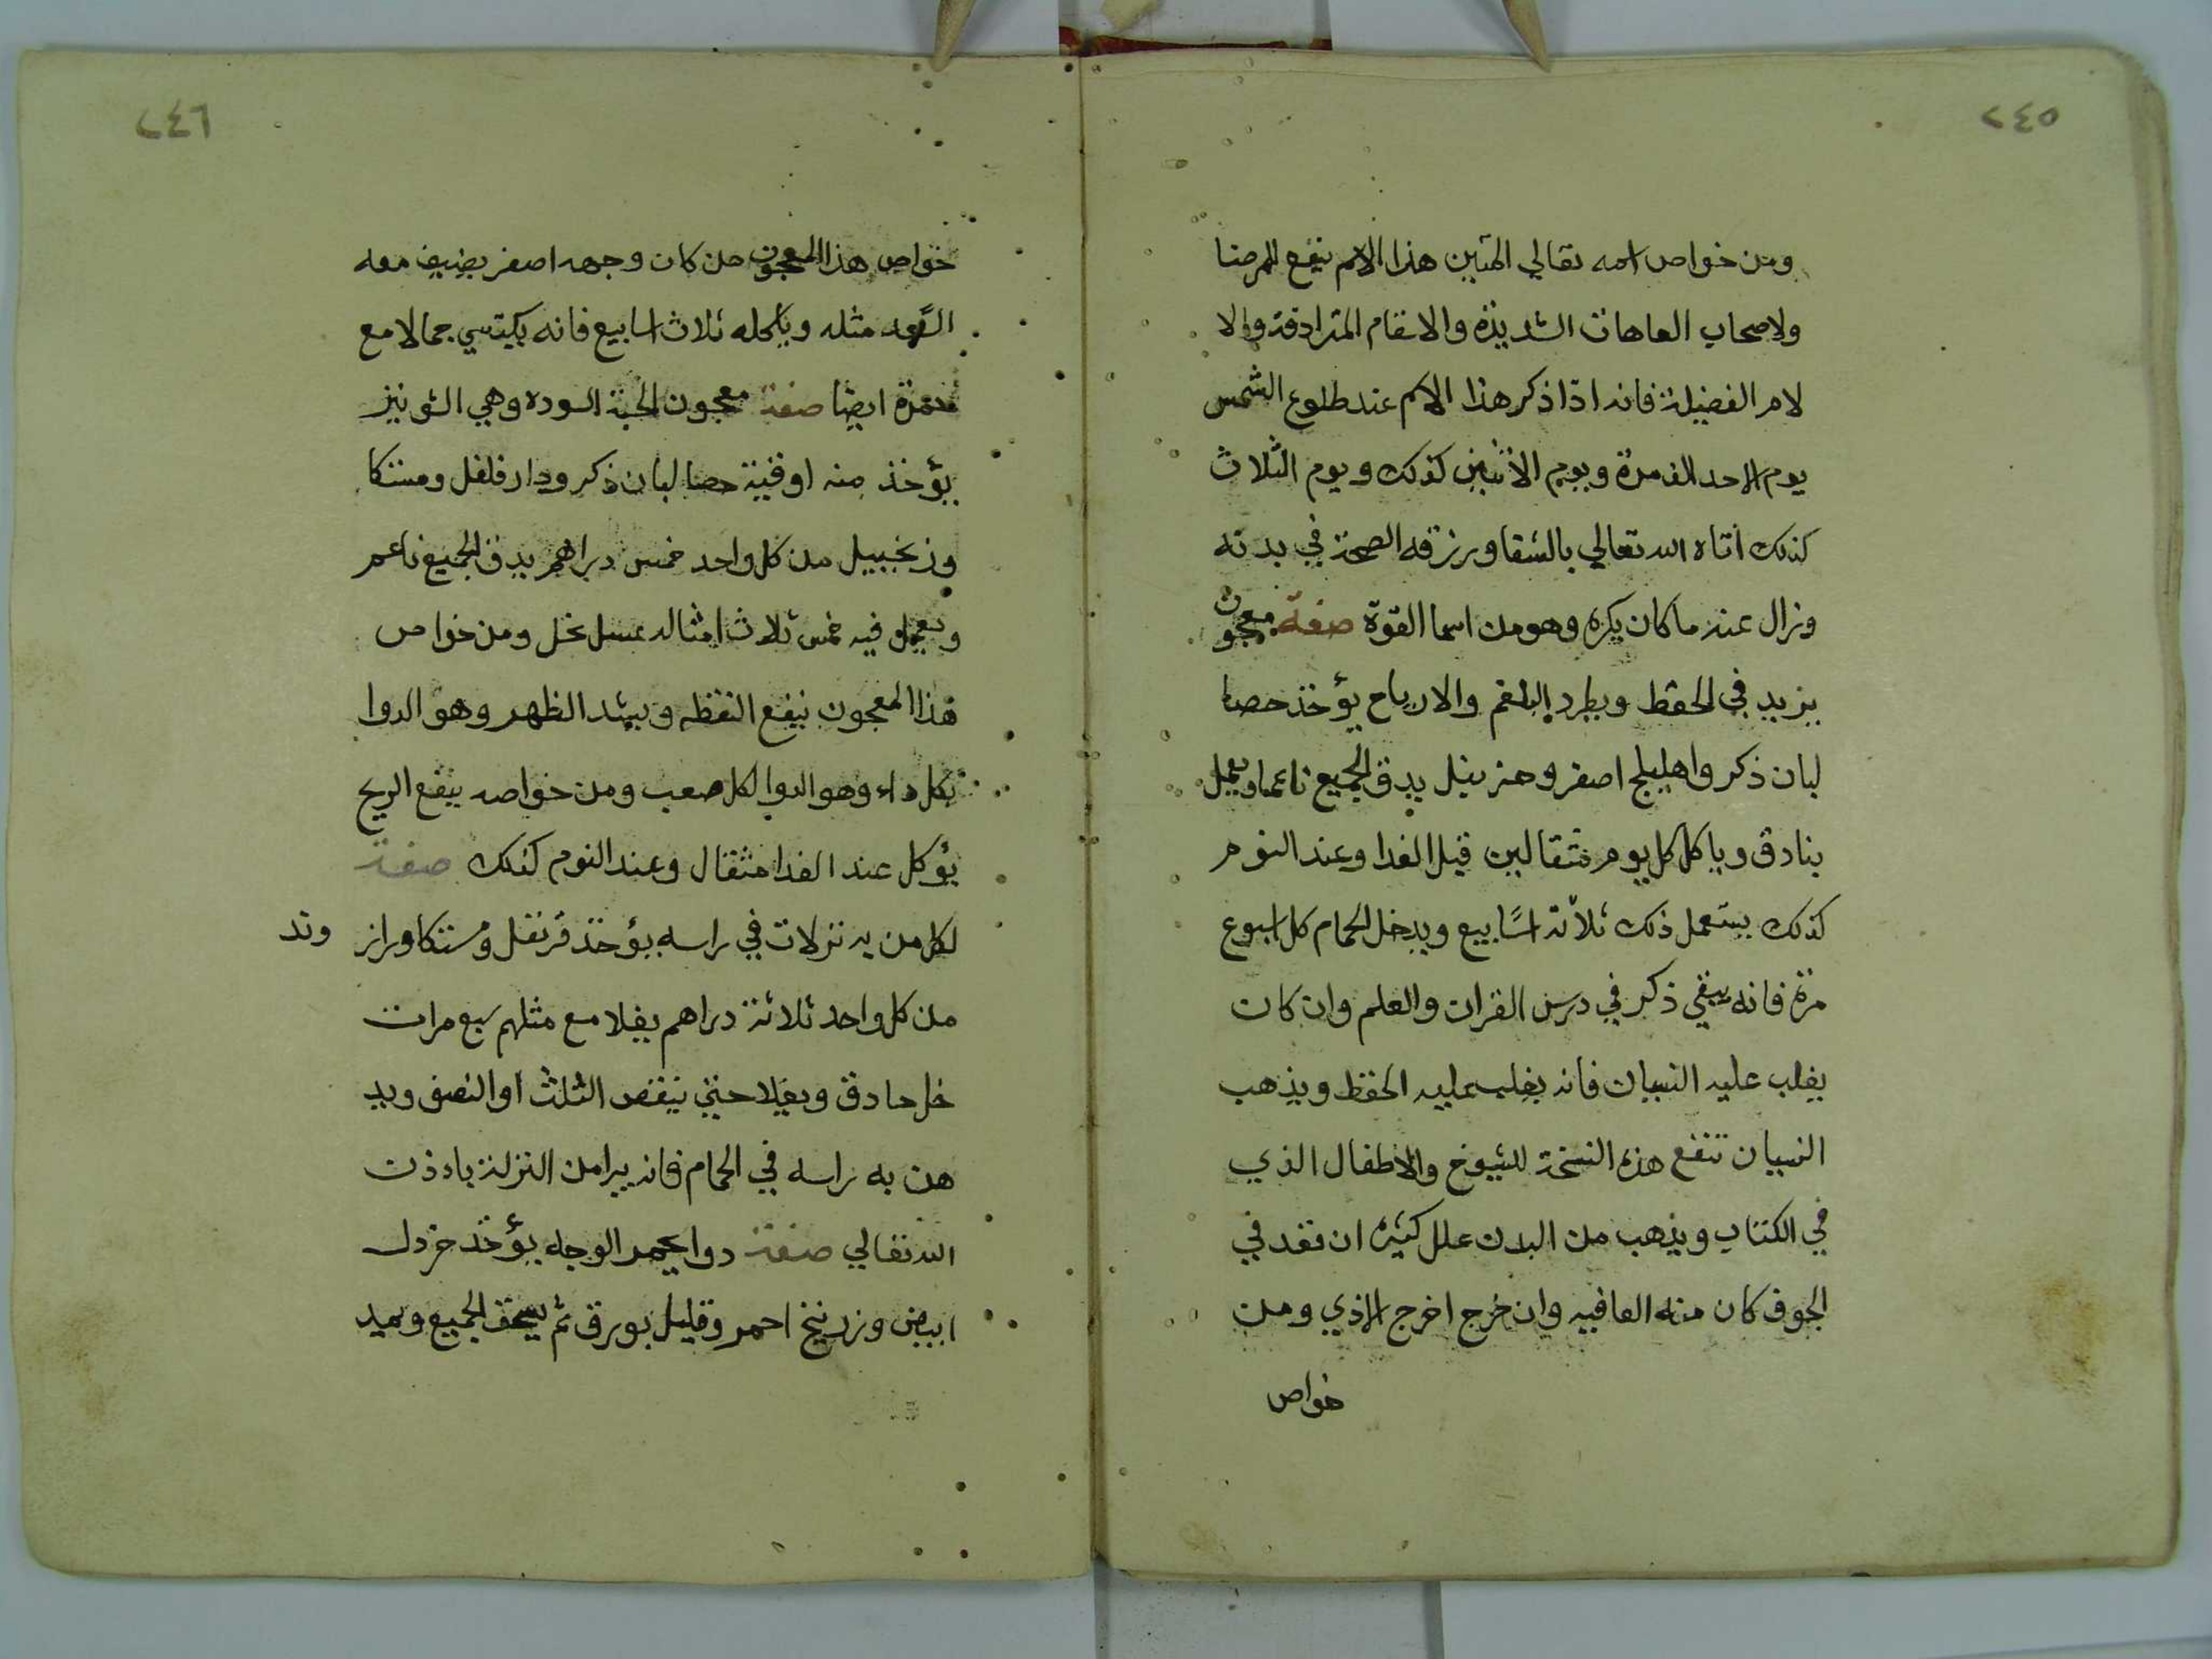 ٢٤٥
ومن خواص اسمه تعالي المتين هذا الاسم ينفع للمرضا
ولاصحاب العاهات الشديدة والاسقام المترادفة والا
لام الفضيلة فانه اذا ذكر هذا الاسم عند طلوع الشمس
يوم الاحد الف مرة ويوم الاثنين كذلك ويوم الثلاث
كذلك اتاه الله تعالي بالشفا ورزقه الصحة في بدنه
وزال عنه ما كان يكره وهو من اسما القوة صفة معجون
يزيد في الحفظ ويطرد البلغم والارياح يؤخذ حصا
لبان ذكر واهليلج اصفر وحنزبيل يدق الجميع ناعما ويعمل
بنادق وياكل كل يوم مثقالين قبل الغدا وعند النوم
كذلك يستعمل ذلك ثلاثة اسابيع ويدخل الحمام كل اسبوع
مرة فانه يبقي ذكر في درس القران والعلم وان كان
يغلب عليه النسيان فانه يغلب عليه الحفظ ويذهب
النسيان تنفع هذه النسخة للشيوخ والاطفال الذي
في الكتاب ويذهب من البدن علل كثيره ان قعد في
الجوف كان منه العافيه وان خرج اخرج الاذي ومن
خواص
٢٤٦
خواص هذا المعجون من كان وجهه اصفر يضيف معه
السعد مثله وياكله ثلاث اسابيع فانه يكتسي جمالا مع
حمرة ايضا صفة معجون الحبة السوده وهي الشونيز
يؤخذ منه اوقيه حصا لبان ذكر ودار فلفل ومستكا
وزنجبيل من كل واحد خمس دراهم يدق الجميع ناعم
ويعمل فيه خمس ثلاث امثاله عسل نحل ومن خواص
هذا المعجون ينفع النقطه ويشد الظهر وهو الدوا
لكل داء وهو الدوا لكل صعب ومن خواصه ينفع الريح
يؤكل عند الغدا مثقال وعند النوم كذلك صفة
لكل من به نزلات في راسه يؤخذ قرنفل ومستكا وراز
وند
من كل واحد ثلاثة دراهم يغلا مع مثلهم سبع مرات
خل حادق ويغلا حتي ينقص الثلث او النصف ويد
هن به راسه في الحمام فانه يبرا من النزلة باذن
الله تعالي صفة دوا يحمر الوجه يؤخذ خردل
ابيض وزرنيخ احمر وقليل بورق ثم يسحق الجميع ويميد